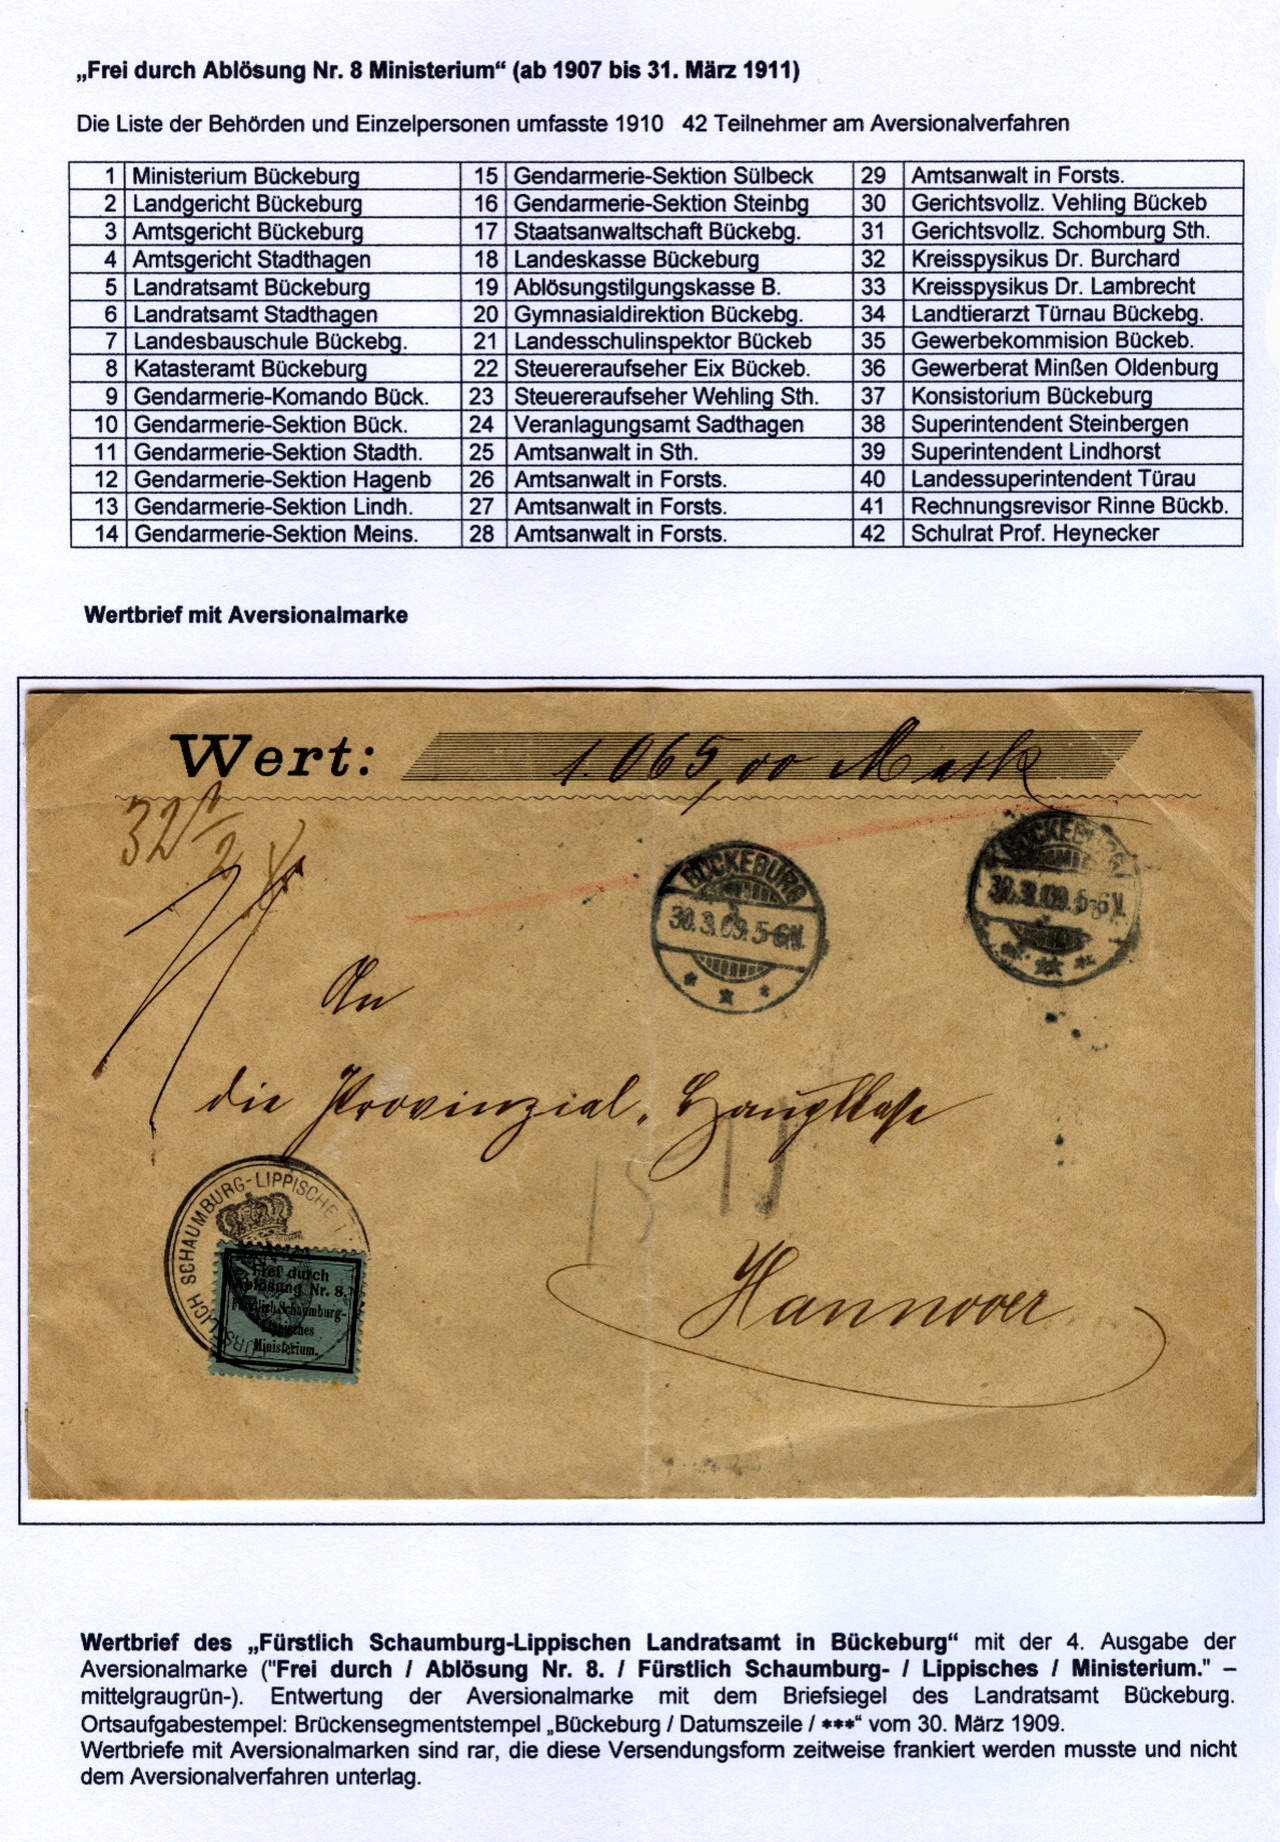 „Frei durch Ablösung Nr. 8 Ministerium“ (ab 1907 bis 31. März 1911)
Die Liste der Behörden und Einzelpersonen umfasste 1910 42 Teilnehmer am Aversionalverfahren
1 Ministerium Bückeburg 15 Gendarmerie-Sektion Sülbeck 29 Amtsanwalt in Forsts.
2 Landgericht Bückeburg 16 Gendarmerie-Sektion Steinbg 30 Gerichtsvollz. Vehling Bückeb
3 Amtsgericht Bückeburg 17 Staatsanwaltschaft Bückebg. 31 Gerichtsvollz. Schomburg Sth.
4 Amtsgericht Stadthagen 18 Landeskasse Bückeburg 32 Kreisspysikus Dr. Burchard
5 Landratsamt Bückeburg 19 Ablösungstilgungskasse B. 33 Kreisspysikus Dr. Lambrecht
6 Landratsamt Stadthagen 20 Gymnasialdirektion Bückebg. 34 Landtierarzt Türnau Bückebg.
7 Landesbauschule Bückebg. 21 Landesschulinspektor Bückeb 35 Gewerbekommision Bückeb.
8 Katasteramt Bückeburg 22 Steuereraufseher Eix Bückeb. 36 Gewerberat Minßen Oldenburg
9 Gendarmerie-Komando Bück. 23 Steuereraufseher Wehling Sth. 37 Konsistorium Bückeburg
10 Gendarmerie-Sektion Bück. 24 Veranlagungsamt Sadthagen 38 Superintendent Steinbergen
11 Gendarmerie-Sektion Stadth. 25 Amtsanwalt in Sth. 39 Superintendent Lindhorst
12 Gendarmerie-Sektion Hagenb 26 Amtsanwalt in Forsts. 40 Landessuperintendent Türau
13 Gendarmerie-Sektion Lindh. 27 Amtsanwalt in Forsts. 41 Rechnungsrevisor Rinne Bückb.
14 Gendarmerie-Sektion Meins. 28 Amtsanwalt in Forsts. 42 Schulrat Prof. Heynecker
Wertbrief mit Aversionalmarke
Wert: 1.065,00 Mark
BÜCKEBURG
30.3.09.5-6V.
BÜCKEBURG
30.3.09.5-6V.
An
die Provinzial-Hauptkasse
Hannover
SCHAUMBURG-LIPPISCHE
Frei durch
Ablösung Nr. 8.
Fürstlich Schaumburg-
Lippisches
Ministerium.
Wertbrief des „Fürstlich Schaumburg-Lippischen Landratsamt in Bückeburg“ mit der 4. Ausgabe der
Aversionalmarke ("Frei durch / Ablösung Nr. 8. / Fürstlich Schaumburg- / Lippisches / Ministerium." –
mittelgraugrün-). Entwertung der Aversionalmarke mit dem Briefsiegel des Landratsamt Bückeburg.
Ortsaufgabestempel: Brückensegmentstempel „Bückeburg / Datumszeile / ***“ vom 30. März 1909.
Wertbriefe mit Aversionalmarken sind rar, die diese Versendungsform zeitweise frankiert werden musste und nicht
dem Aversionalverfahren unterlag.